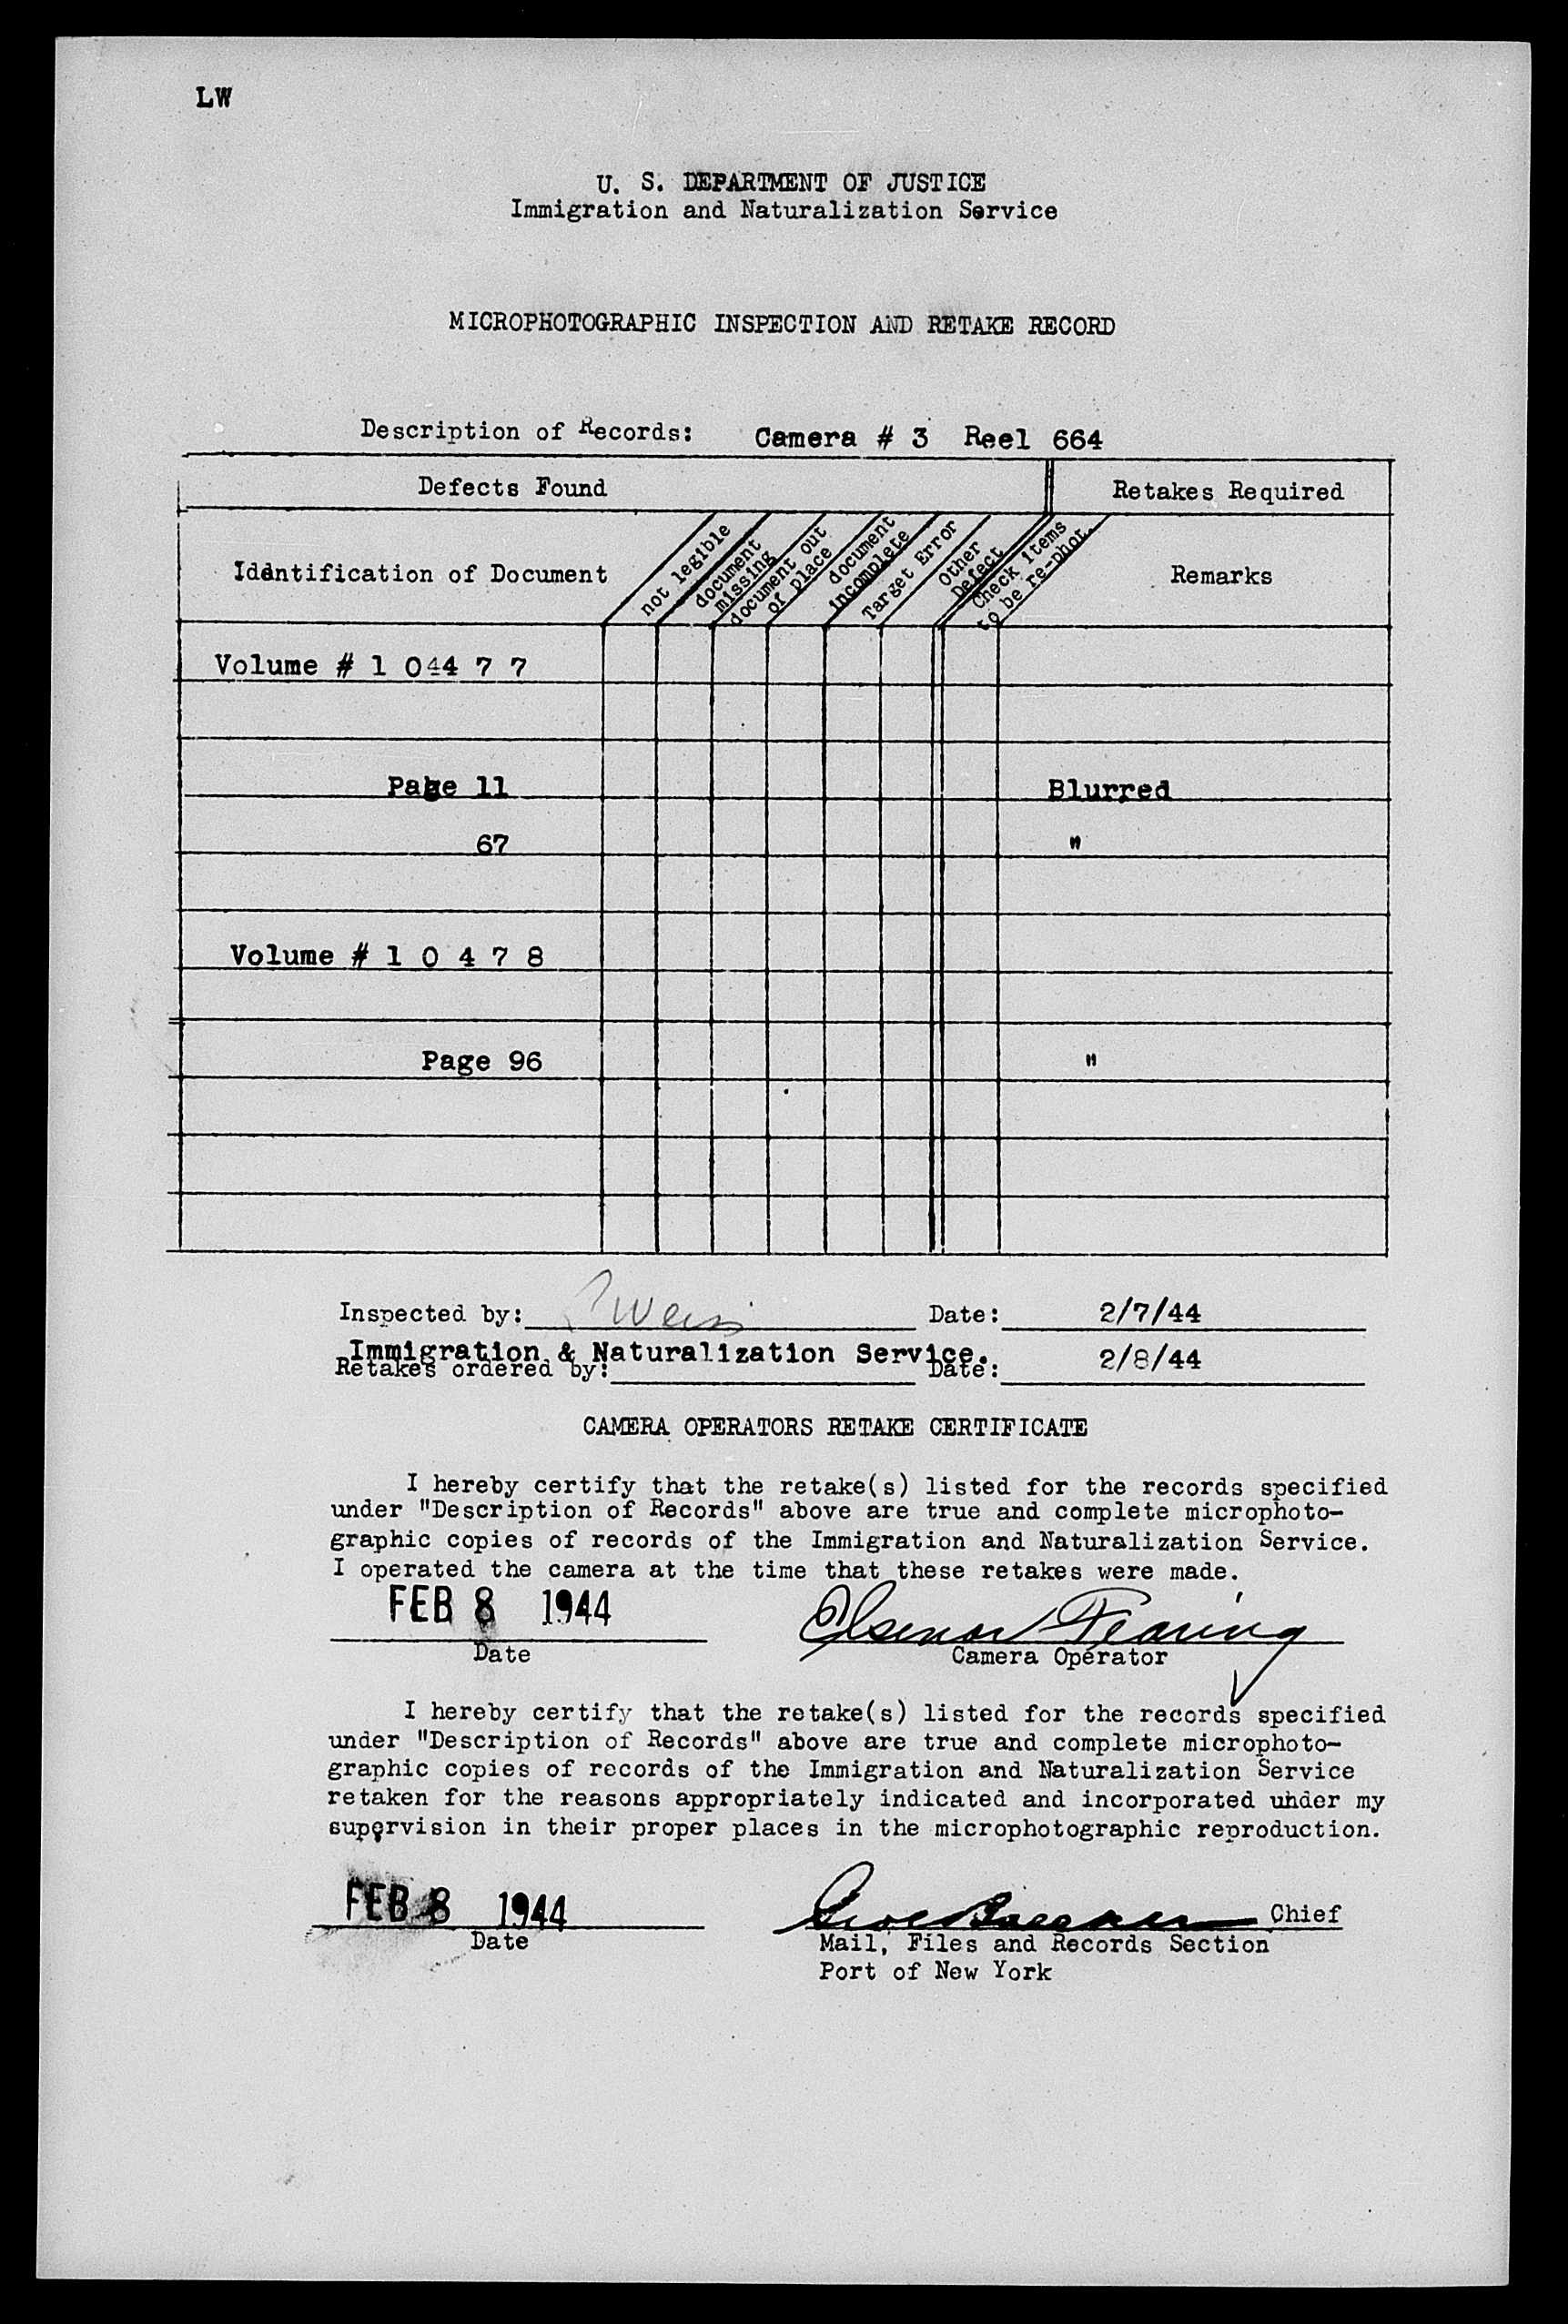 LW
U. S. DEPARTMENT OF JUSTICE
Immigration and Naturalization Service
MICROPHOTOGRAPHIC INSPECTION AND RETAKE RECORD
Description of Records: Camera # 3 Reel 664
Defects Found
Retakes Required
Identification of Document
not legible
document
missing
document out
of place
document
incomplete
Target Error
Other
Defect
Check items
to be re-phot.
Remarks
Volume # 1 0 4 4 7 7
Page 11 Blurred
67 "
Volume # 1 0 4 7 8
Page 96 "
Inspected by: Date: 2/7/44
Immigration & Naturalization Service.
Retakes ordered by: Date: 2/8/44
CAMERA OPERATORS RETAKE CERTIFICATE
I hereby certify that the retake(s) listed for the records specified
under "Description of Records" above are true and complete microphoto-
graphic copies of records of the Immigration and Naturalization Service.
I operated the camera at the time that these retakes were made.
FEB 8 1944 Fearing
Date Camera Operator
I hereby certify that the retake(s) listed for the records specified
under "Description of Records" above are true and complete microphoto-
graphic copies of records of the Immigration and Naturalization Service
retaken for the reasons appropriately indicated and incorporated under my
supervision in their proper places in the microphotographic reproduction.
FEB 8 1944 Chief
Date Mail, Files and Records Section
Port of New York